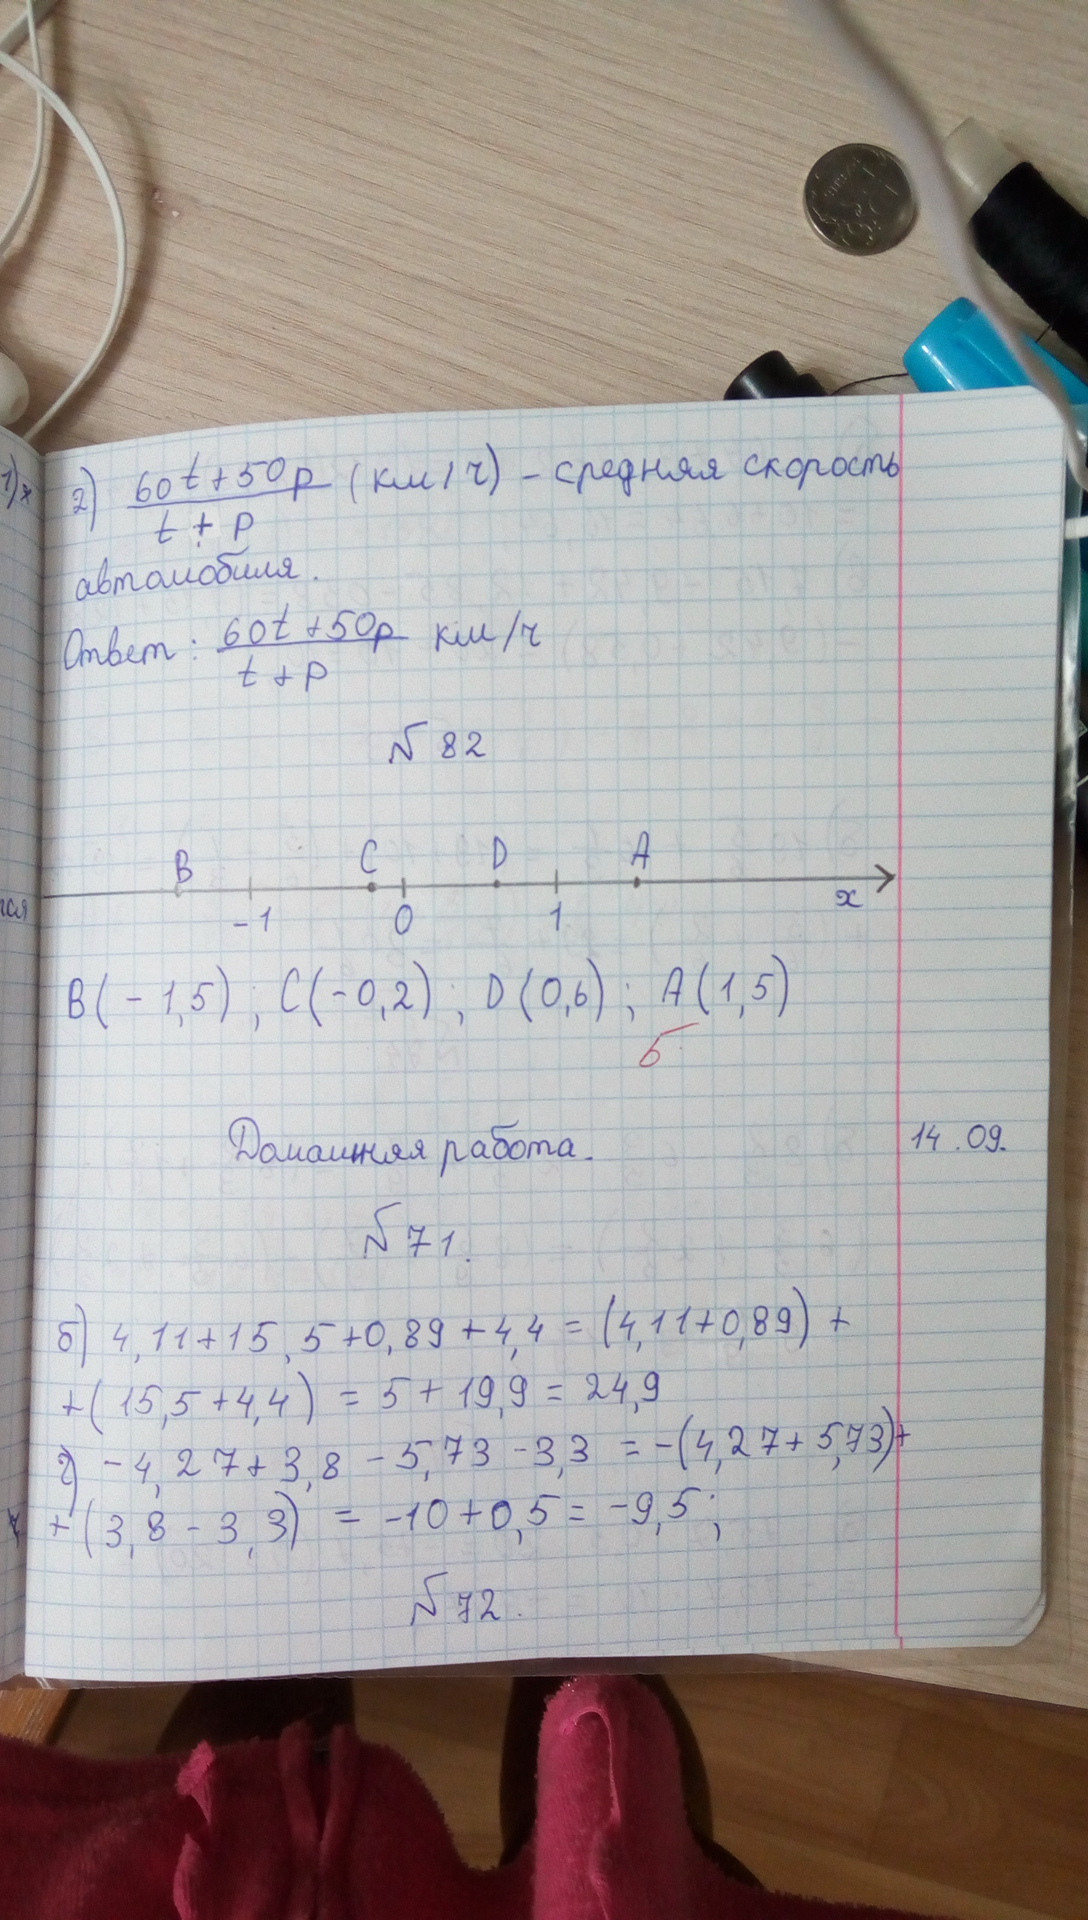 2) (60t+50p)/(t+p) (км/ч) - средняя скорость
автомобиля.
Ответ: (60t+50p)/(t+p) км/ч
№ 82
B C D A
-1 0 1 x
B(-1,5); C(-0,2); D(0,6); A(1,5)
5
Домашняя работа. 14.09.
№71.
б) 4,11+15,5+0,89+4,4 = (4,11+0,89) +
+(15,5+4,4) = 5+19,9 = 24,9
г) -4,27+3,8-5,73-3,3 = -(4,27+5,73)+
+(3,8-3,3) = -10+0,5 = -9,5;
№72.